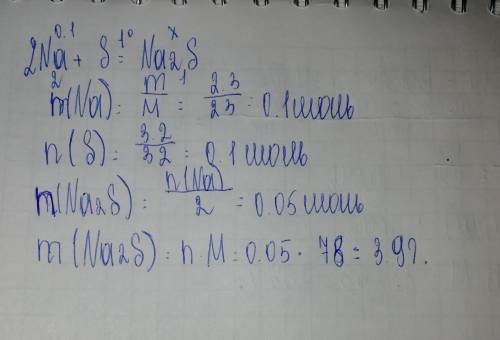 0.1 t° x
2Na + S = Na2S
2 1
m(Na) = m/M = 2.3/23 = 0.1 моль
n(S) = 3.2/32 = 0.1 моль
m(Na2S) = n(Na)/2 = 0.05 моль
m(Na2S) = n·M = 0.05 · 78 = 3.9г.